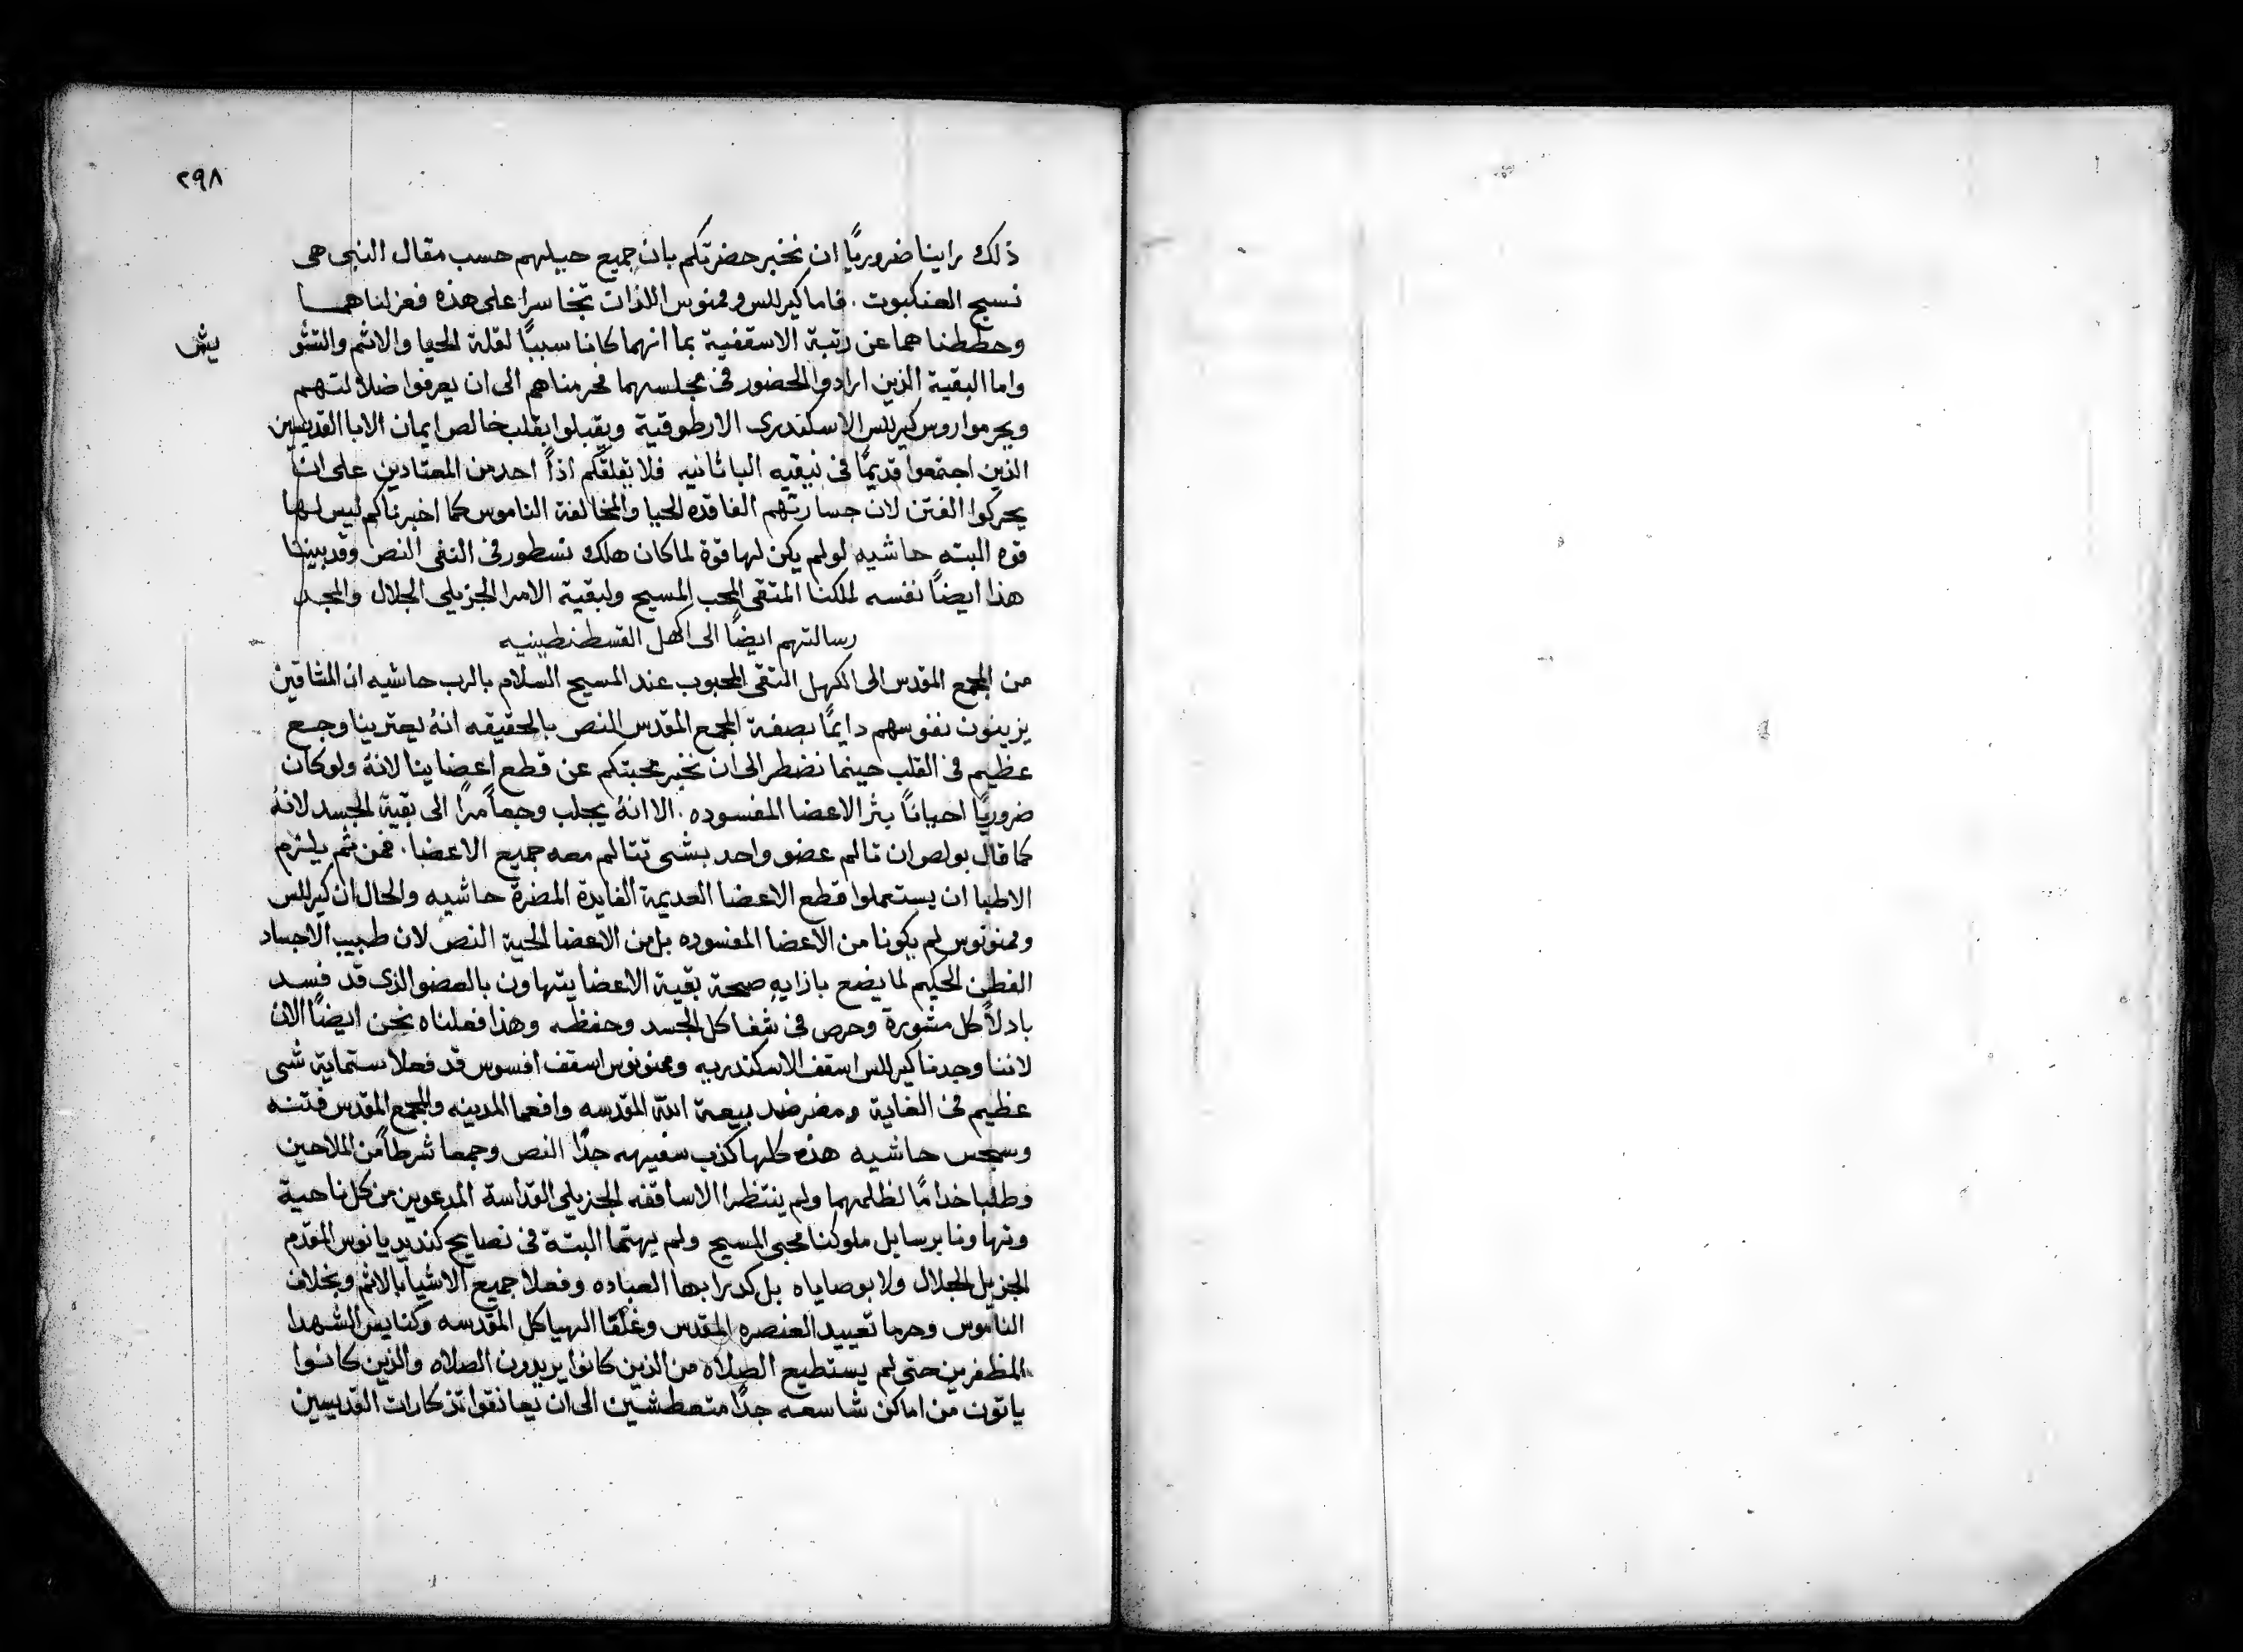 ٢٩٨
ذلك راينا ضروريًا ان نخبر حضرتكم بان جميع حيلهم حسب مقال النبى هى
نسيج العنكبوت . فاما كيرللس وممنوس اللذان تجاسرا على هذه فعزلناهما
وحططناهما عن رتبة الاسقفية بما انهما كانا سببًا لقلة الحيا والاثم والتشو
يش
واما البقية الذين ارادوا الحضور فى مجلسهما فحرمناهم الى ان يعرفوا ضلالتهم
ويحرموا روس كيرللس الاسكندرى الارطوقية ويقبلوا بقلب خالص ايمان الابا القديسين
الذين اجتمعوا قديمًا فى نيقيه الباثانيه فلا تقلقكم اذاً احد من المعتادين على ان
يحركوا الفتن لان جسارتهم الفاقده الحيا والمخالفة الناموس كما اخبرناكم ليس لها
قوه البته حاشيه لو لم يكن لها قوة لما كان هلك نسطور فى النفى النص وقد بينا
هذا ايضًا نفسه لملكنا المتقى المحب المسيح ولبقية الامرا الجزيلى الجلال والمجد
رسالتهم ايضًا الى اكهل القسطنطينيه
من المجمع المقدس الى الكهل النقى المحبوب عند المسيح السلام بالرب حاشيه ان المشاقين
يزينون نفوسهم دايمًا بصفة المجمع المقدس النص بالحقيقه انهُ يعترينا وجع
عظيم فى القلب حينما نضطر الى ان نخبر محبتكم عن قطع اعضاينا لانهُ ولو كان
ضروريًا احيانًا بثر الاعضا المفسوده . الا انهُ يجلب وجعاً مرًا الى بقية الجسد لانهُ
كما قال بولص ان تالم عضو واحد بشى تتالم معه جميع الاعضا . فمن ثم يلتزم
الاطبا ان يستعملوا قطع الاعضا العديمة الفايدة المضرة حاشيه والحال ان كيرللس
وممنونوس لم يكونا من الاعضا المفسوده بل من الاعضا الحية النص لان طبيب الاجساد
الفطن الحكيم لما يضع بازايه صحة بقية الاعضا يتهاون بالعضو الذى قد فسد
بادلاً كل مشورة وحرص فى شفا كل الجسد وحفظه وهذا فعلناه نحن ايضًا الان
لاننا وجدنا كيرللس اسقف الاسكندريه وممنونوس اسقف افسوس قد فعلا ستماية شى
عظيم فى الغاية ومضر ضد بيعة الله المقدسه وافعما المدينه والمجمع المقدس فتنه
وسجس حاشيه هذه كلها كذب سفيهه جدًا النص وجمعا شرطاً من الملاحين
وطلبا خدامًا لظلمهما ولم ينتظرا الاساقفه الجزيلى القداسة المدعوين من كل ناحية
وتهاونا برسايل ملوكنا محبى المسيح ولم يهتما البتة فى نصايح كنديديانوس المقدم
الجزيل الجلال ولا بوصاياه بل كدرا بها العباده وفعلا جميع الاشيا بالاثم وبخلاف
الناموس وحرما تعييد العنصره المقدس وغلقا الهياكل المقدسه وكنايس الشهدا
المظفرين حتى لم يستطيع الصلاه من الذين كانوا يريدون الصلاه والذين كانوا
ياتون من اماكن شاسعه جدًا متعطشين الى ان يعانقوا تذكارات القديسين